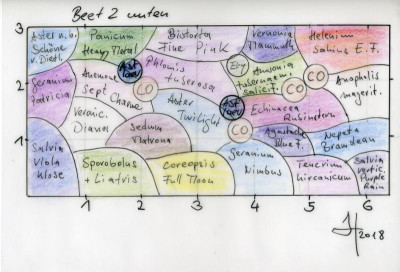 Beet 2 unten
3
Aster n.b.
Schöne
v. Dietl.
Panicum
Heavy Metal
Bistorta
Fine Pink
Vernonia
Mammuth
Helenium
Sahins E. F.
2
Geranium
Patricia
Anemone
Sept
Charme
Ast
Phlomis
tuberosa
Ery
Amsonia
tabernaem.
salicif.
CO
CO
CO
Anaphalis
margarit.
Veronic.
Diana
Aster
Twilight
Ast
Echinacea
Rubinstern
1
Salvia
Viola
Klose
Sedum
Matrona
CO
Agastache
Blue F.
Nepeta
Grandean
Sporobolus
+ Liatris
Coreopsis
Full Moon
Geranium
Nimbus
Teucrium
hircanicum
Salvia
vertic.
Purple
Rain
1 2 3 4 5 6
2018